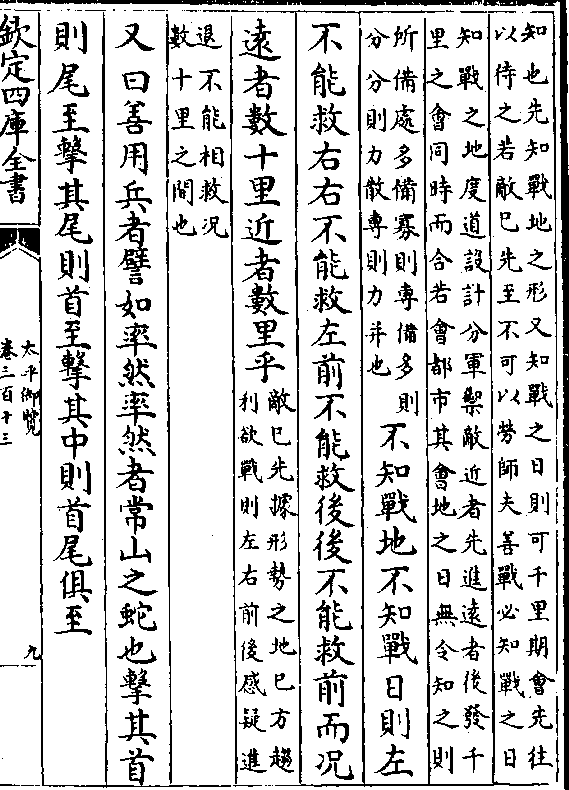 知也先知戰地之形又知戰之日則可千里期會先往
以待之若敵已先至不可以勞師夫善戰必知戰之日
知戰之地度道設計分軍禦敵近者先進遠者後發千
里之會同時而合若會都市其會地之日無令知之則
所備處多備寡則專備多則
分分則力散專則力并也
不知戰地不知戰日則左
不能救右右不能救左前不能救後後不能救前而况
遠者數十里近者數里乎
敵已先據形勢之地已方趨
利欲戰則左右前後感疑進
退不能相救况
數十里之間也
又曰善用兵者譬如率然率然者常山之蛇也擊其首
則尾至擊其尾則首至擊其中則首尾俱至
欽定四庫全書
太平御覽
卷三百十三
九